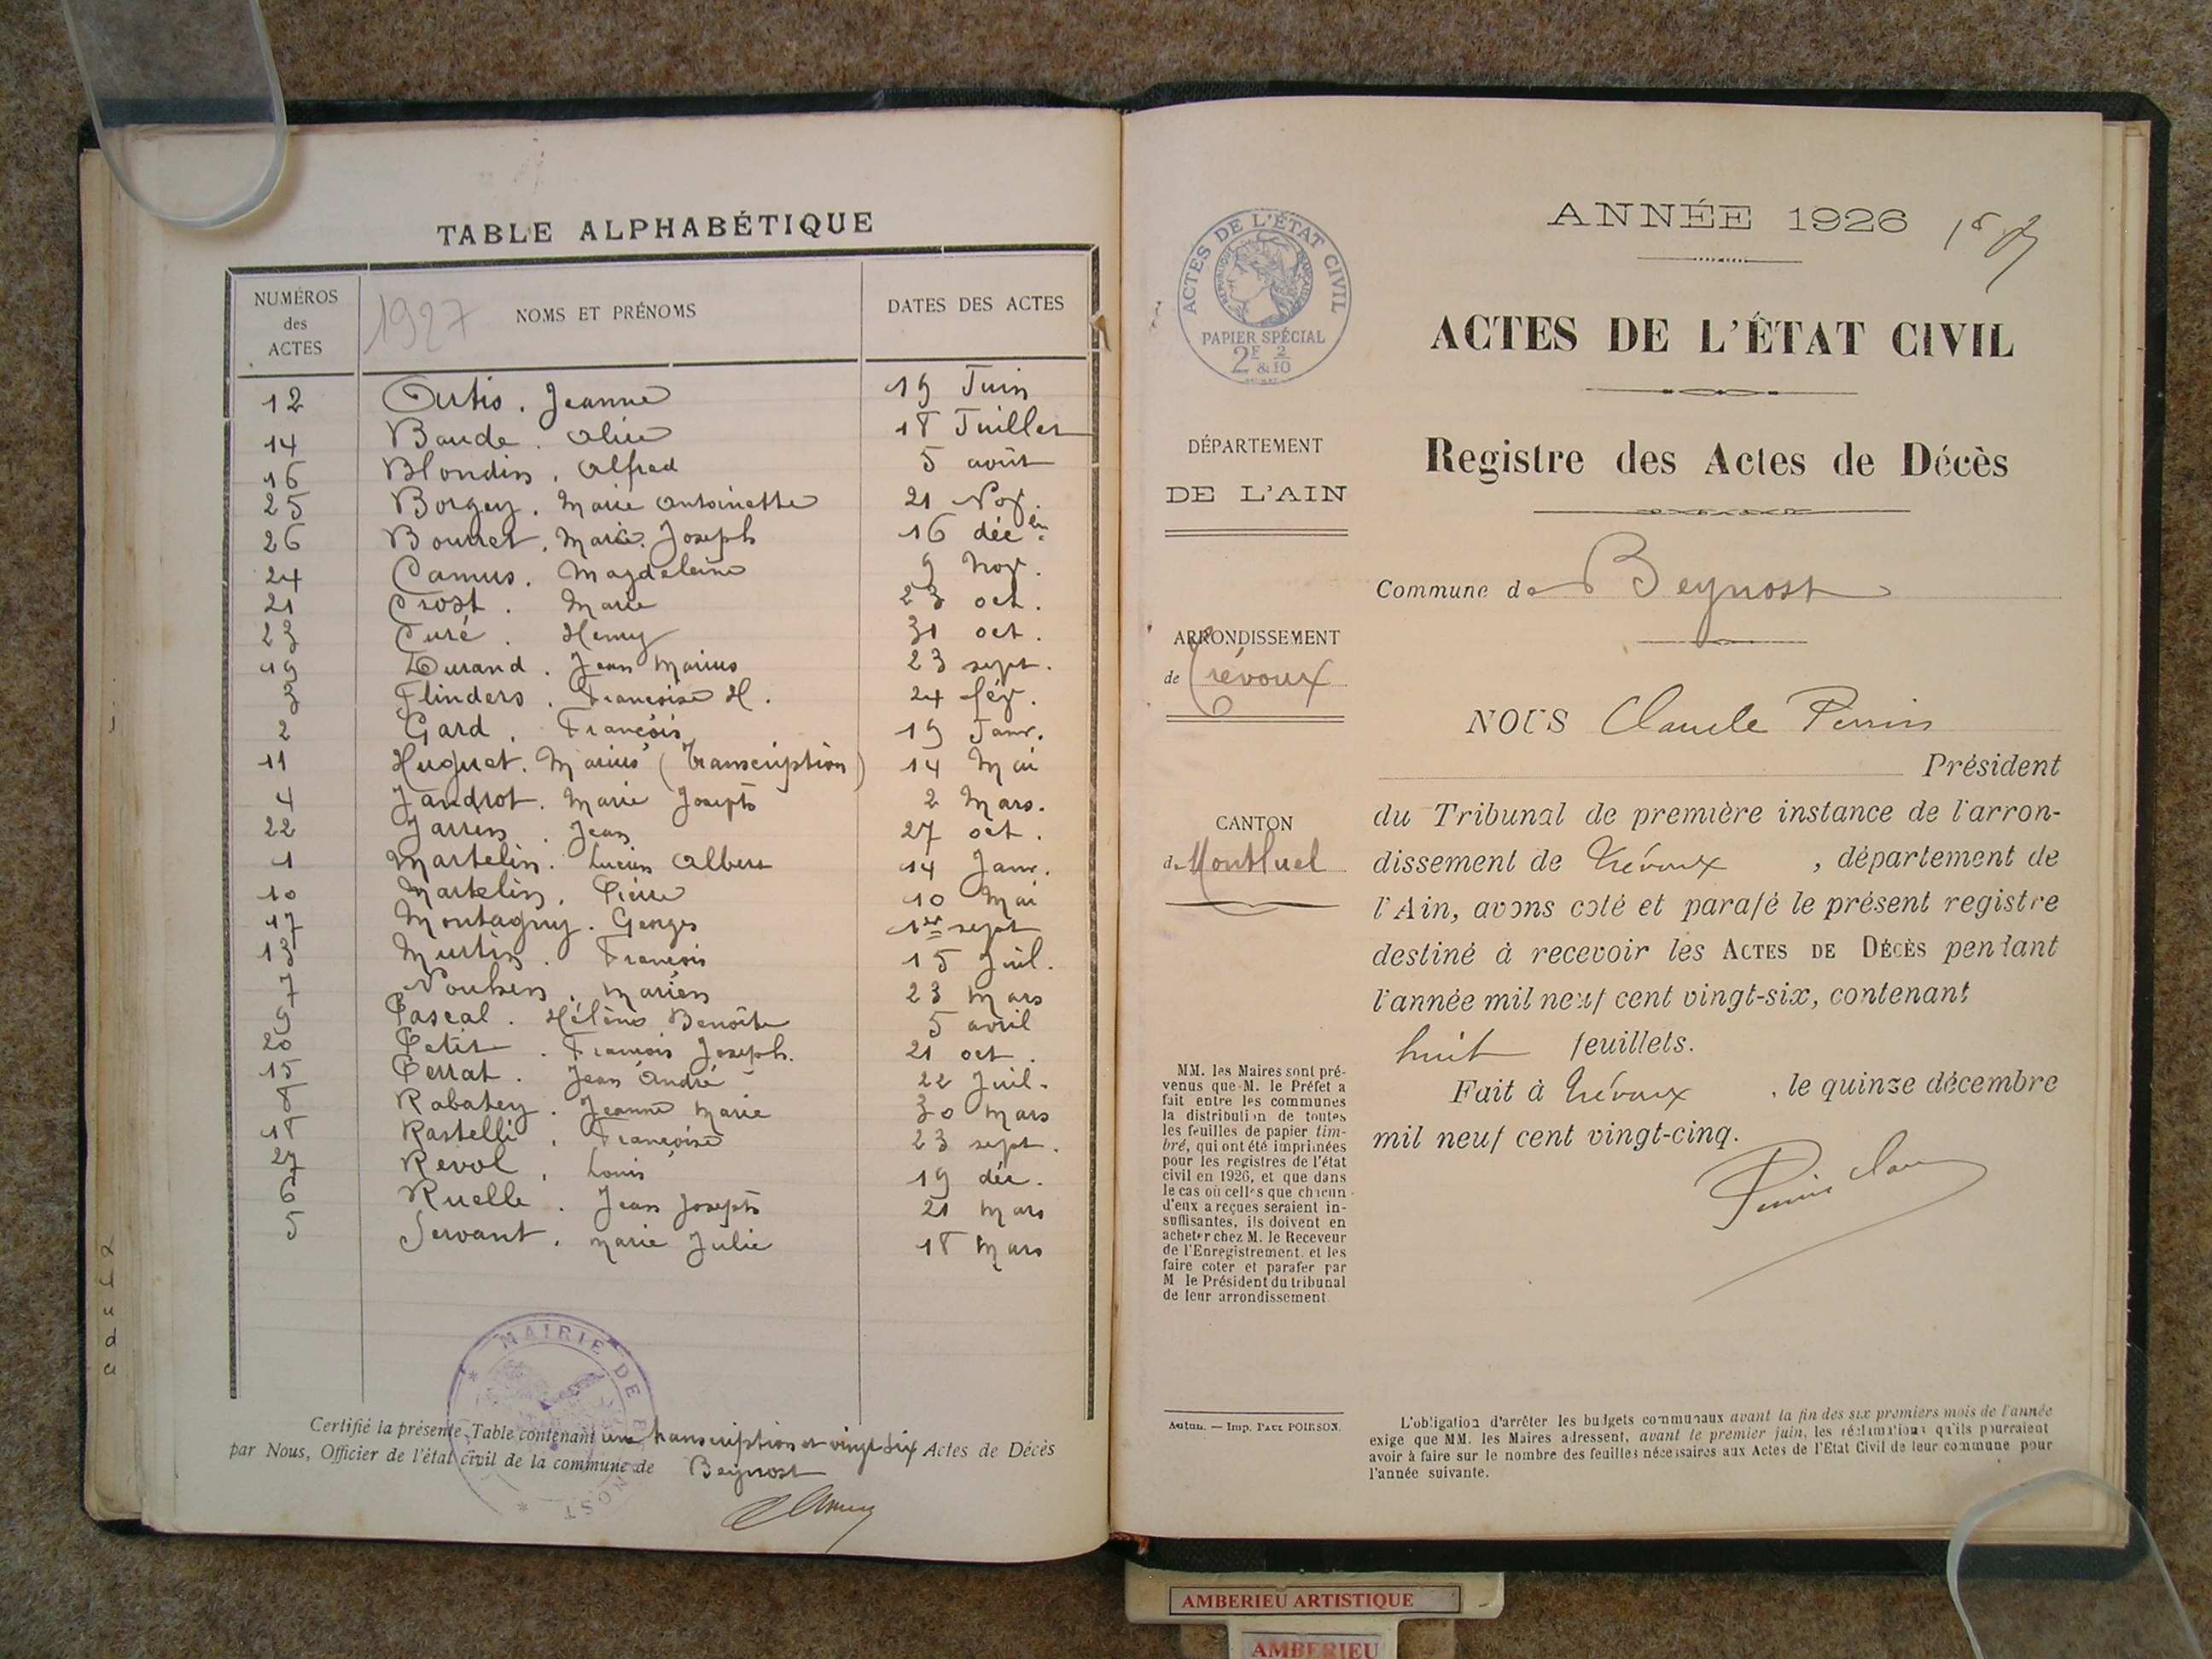 TABLE ALPHABÉTIQUE
NUMÉROS des ACTES
1927 NOMS ET PRÉNOMS
DATES DES ACTES
12 Artis. Jeanne 19 Juin
14 Baude. Alice 18 Juillet
16 Blondin. Alfred 5 août
25 Borgey. Marie Antoinette 21 Nov.
26 Bourret. Marie Joseph 16 déc bre
24 Camus. Magdeleine 9 Nov.
21 Crost. Marie 23 oct.
23 Curé. Henry 31 oct.
19 Durand. Jean Marius 23 sept.
3 Flinders. Françoise H. 24 fév.
2 Gard. François 19 Janv.
11 Huguet. Marius (Transcription) 14 Mai
4 Jandrot. Marie Joseph 2 Mars.
22 Jarrin. Jean 27 oct.
1 Martelin. Lucien Albert 14 Janv.
10 Martelin. Pierre 10 Mai
17 Montagny. Georges 1er sept
13 Murtin. François 15 Juil.
7 Marien 23 Mars
9 Pascal. Hélène Benoîte 5 avril
20 Petit. François Joseph. 21 oct.
15 Perrat. Jean André 22 Juil.
8 Rabatey. Jeanne Marie 30 Mars
18 Rastelli. Françoise 23 sept.
27 Revol. Louis 19 déc.
6 Ruelle. Jean Joseph 21 Mars
5 Servant. Marie Julie 18 Mars
MAIRIE DE BEYNOST
Certifié la présente Table contenant une transcription et vingt six Actes de Décès
par Nous, Officier de l'état civil de la commune de Beynost
ACTES DE L'ÉTAT CIVIL
RÉPUBLIQUE FRANÇAISE
PAPIER SPÉCIAL
2F 2
& 10
ANNÉE 1926
ACTES DE L'ÉTAT CIVIL
Registre des Actes de Décès
DÉPARTEMENT
DE L'AIN
Commune de Beynost
ARRONDISSEMENT
de Trévoux
CANTON
de Montluel
NOUS Claude Perrin
Président
du Tribunal de première instance de l'arron-
dissement de Trévoux, département de
l'Ain, avons coté et parafé le présent registre
destiné à recevoir les ACTES DE DÉCÈS pendant
l'année mil neuf cent vingt-six, contenant
huit feuillets.
Fait à Trévoux, le quinze décembre
mil neuf cent vingt-cinq.
MM. les Maires sont pré-
venus que M. le Préfet a
fait entre les communes
la distribution de toutes
les feuilles de papier tim-
bré, qui ont été imprimées
pour les registres de l'état
civil en 1926, et que dans
le cas où celles que chacun
d'eux a reçues seraient in-
suffisantes, ils doivent en
acheter chez M. le Receveur
de l'Enregistrement. et les
faire coter et parafer par
M le Président du tribunal
de leur arrondissement.
Autun. — Imp. PAUL POIRSON.
L'obligation d'arrêter les budgets communaux avant la fin des six premiers mois de l'année
exige que MM. les Maires adressent, avant le premier juin, les réclamations qu'ils pourraient
avoir à faire sur le nombre des feuilles nécessaires aux Actes de l'Etat Civil de leur commune pour
l'année suivante.
AMBERIEU ARTISTIQUE
AMBERIEU